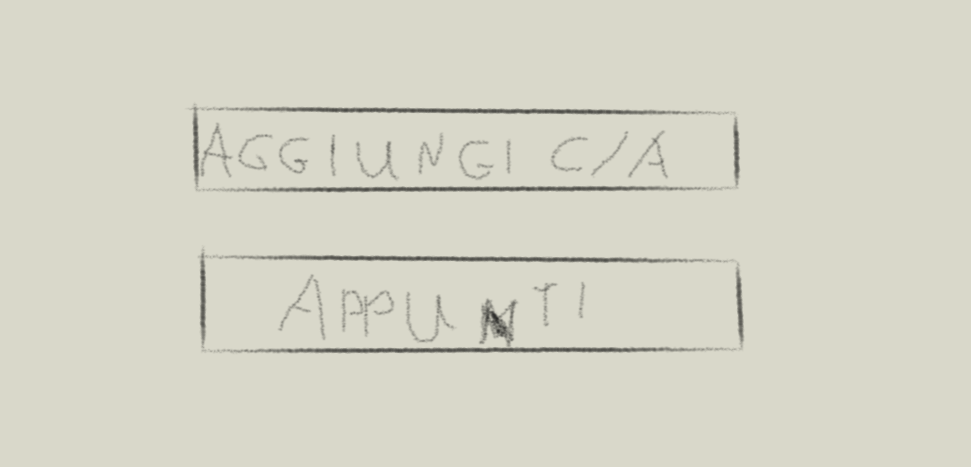 AGGIUNGI C/A
APPUNTI